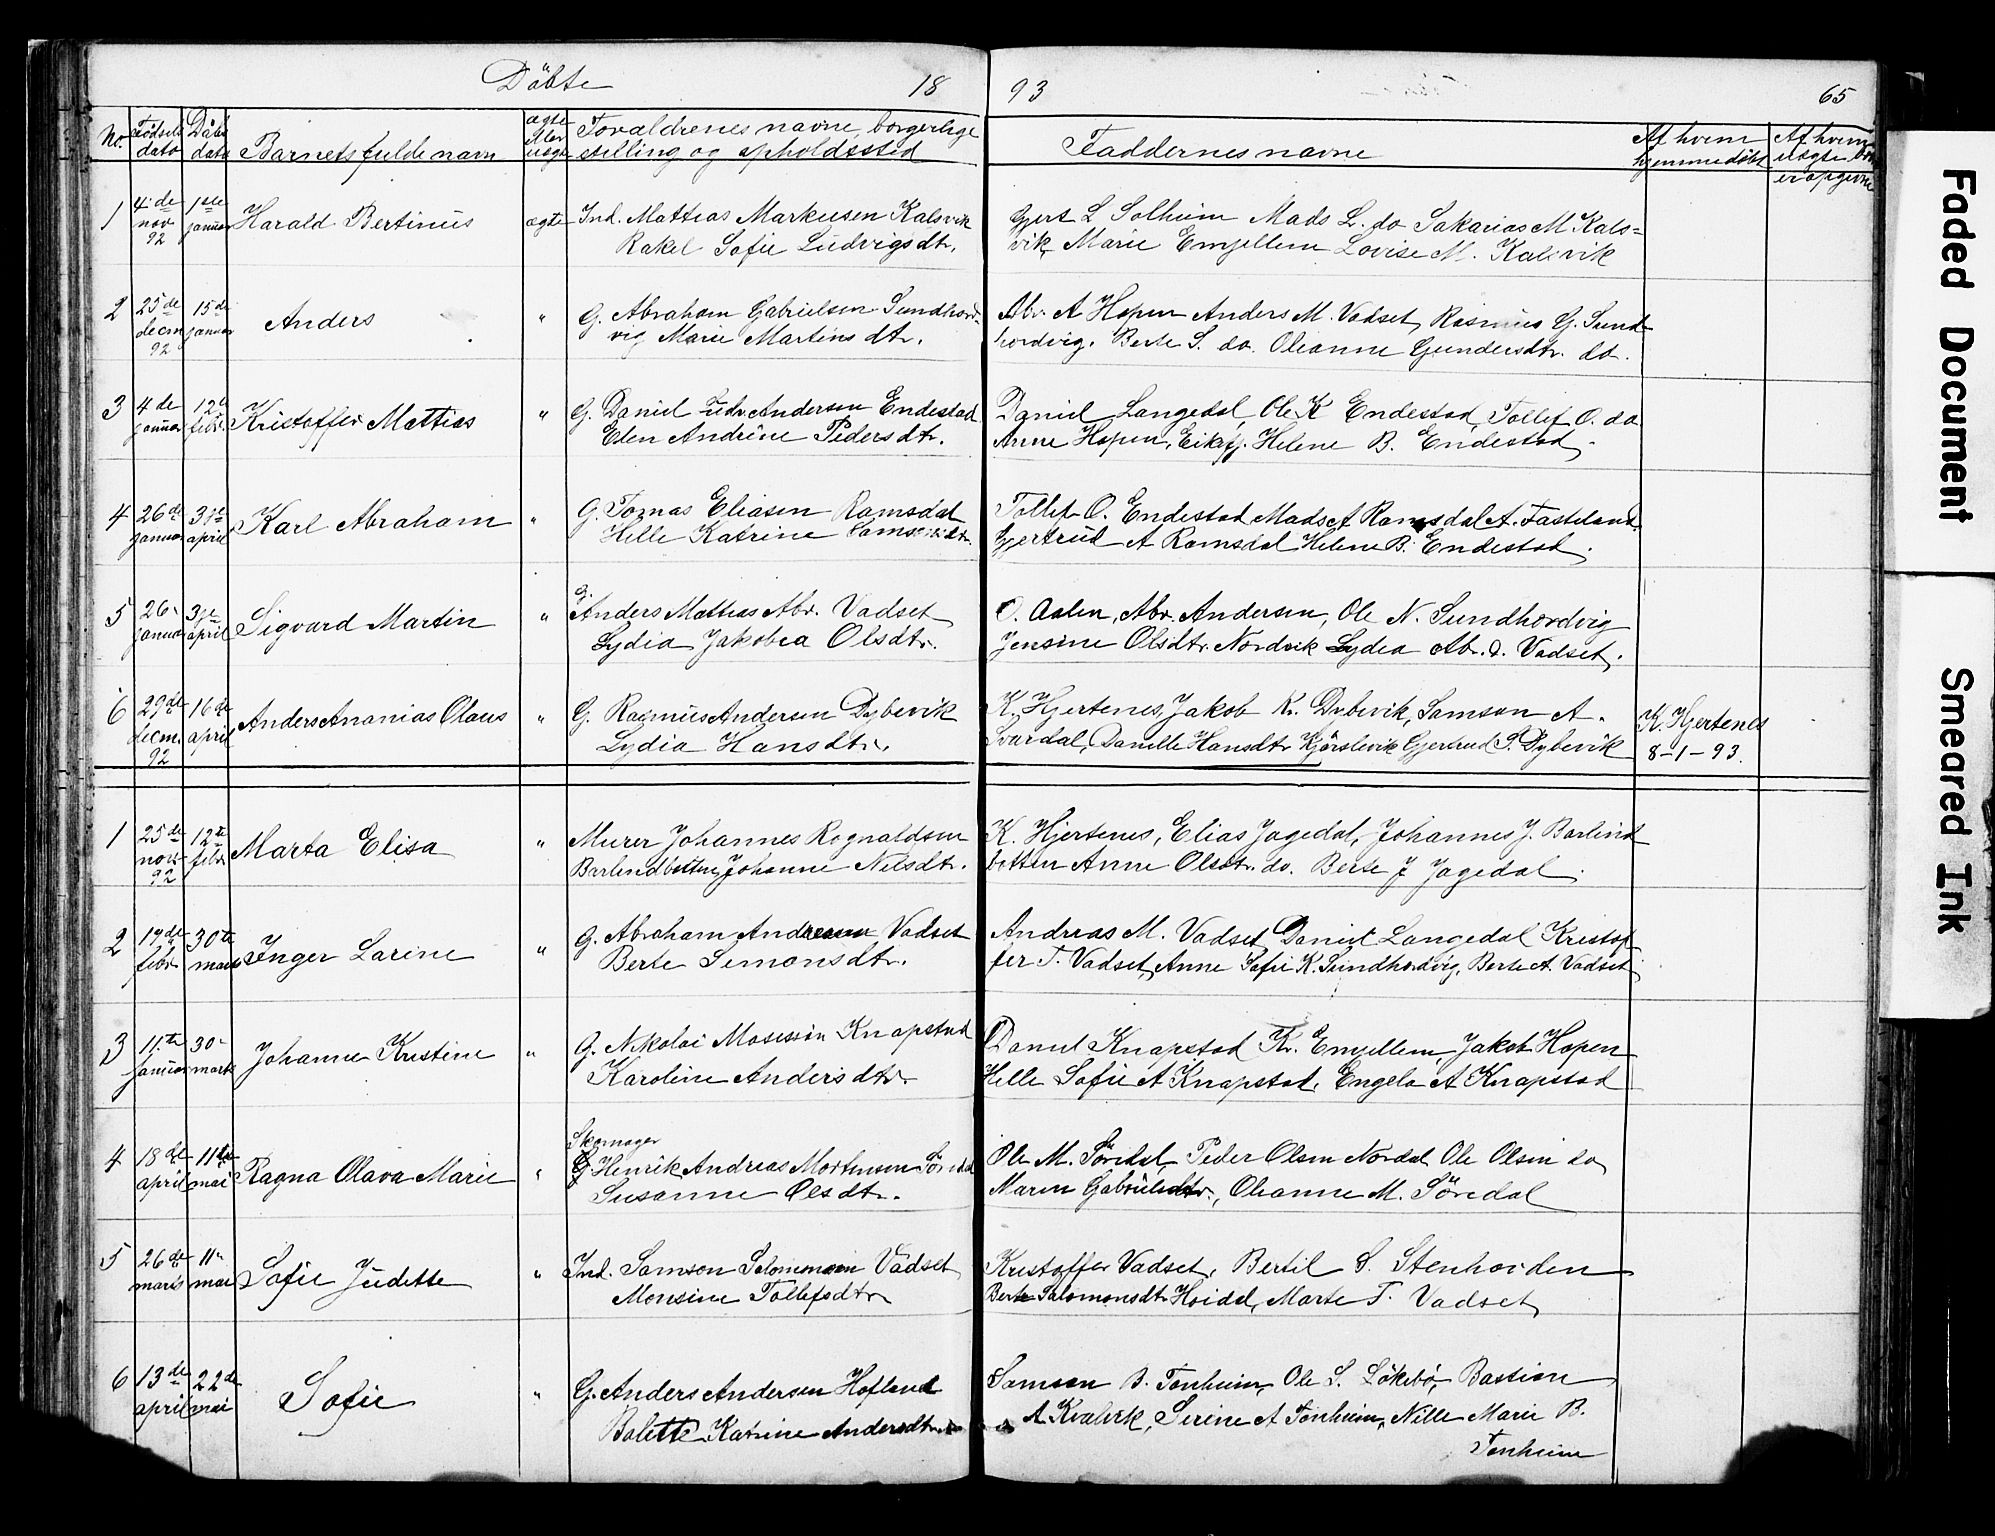 Döbte 18 93 65
No. Födsels dato Döbe dato Barnets fulde navn ægte eller uægte Forældrenes navne, borgerlige stilling og opholdssted Faddernes navne Af hvem hjemmedöbt Af hvem uægte börn er opgivne
1 4de nov 92 1ste januar Harald Bertinus ægte Ind. Mattias Markusen Kalsvik Gjert L Solheim Mads L. do Sakarias M Kals=
Rakel Sofie Ludvigsdtr. vik Marie Emjellem Lovise M. Kalsvik
2 25de decm 92 15de januar Anders " G. Abraham Gabrielsen Sundhord- Abr. A Hopen Anders M. Vadset, Rasmus G. Sund
vig Marie Martinsdtr. hordvig. Berte S. do. Oleanne Gundersdtr. do.
3 4de januar 12te febr. Kristoffer Mattias " G. Daniel Ludv. Andersen Endestad Daniel Langedal, Ole K Endestad, Tollef O. do
Elen Andrine Pedersdtr. Anne Hopen, Eikefj. Helene B. Endestad
4 26de januar 3die april Karl Abraham " G. Tomas Eliasen Ramsdal Tollef O. Endestad Mads A Ramsdal A. Fasteland
Helle Katrine Gjertrud A Ramsdal Helene B. Endestad.
5 26 januar 3die april Sigvard Martin " G. Anders Mattias Abr. Vadset O. Aalen, Abr. Andersen, Ole N. Sundhordvig
Lydia Jakobea Olsdtr. Jensine Olsdtr. Nordvik Lydia Abr. d. Vadset.
6 29de decm. 92 16de april Anders Ananias Olaus " G. Rasmus Andersen Dybevik K. Hjertenes, Jakob Kr. Dybevik, Samson A. K. Hjertenes
Lydia Hansdtr. Svardal, Danille Hansdtr Kjörslevik Gjertrud S. Dybevik 8-1-93.
1 25de nov. 92 12te febr Marta Elisa " Murer Johannes Rognaldsen K. Hjertenes, Elias Jagedal, Johannes J. Barlind
Barlindbotten, Johanne Nilsdtr. botten Anne Olsdtr. do. Berte J Jagedal.
2 19de febr. 30te marts Inger Larine " G. Abraham Andersen Vadset Andreas M. Vadset, Daniel Langedal Kristof
Berte Simonsdtr. fer T. Vadset, Anne Sofie K. Sundhordvig, Berte A. Vadset
3 11te januar 30 marts Johanne Kristine " G. Nikolai Mosessön Knapstad Daniel Knapstad Kr. Emjellem, Jakob Hopen
Karoline Andersdtr. Helle Sofie A Knapstad, Engela A Knapstad
Skomager
4 18de april 11te mai Ragna Olava Marie " G Henrik Andreas Mortensen Söredal Ole M. Söredal, Peder Olsen Nordal Ole Olsen do
Susanne Olsdtr. Maren Gabrielsdtr., Oleanne M. Söredal
5 26de marts 11" mai Sofie Judette " Ind. Samson Salomonsen Vadset Kristoffer Vadset, Bertil S. Stenhovden
Monsine Tollefsdtr Berte Salomonsdtr Hoidal, Marte T. Vadset
6 13de april 22de mai Sofie " G. Anders Andersen Hofland Samson B. Tonheim, Ole S. Lökebö, Bastian
Bolette Katrine Andersdtr. A Kvalvik, Serine A Tonheim, Nille Marie B.
Tonheim
Faded Document
Smeared Ink